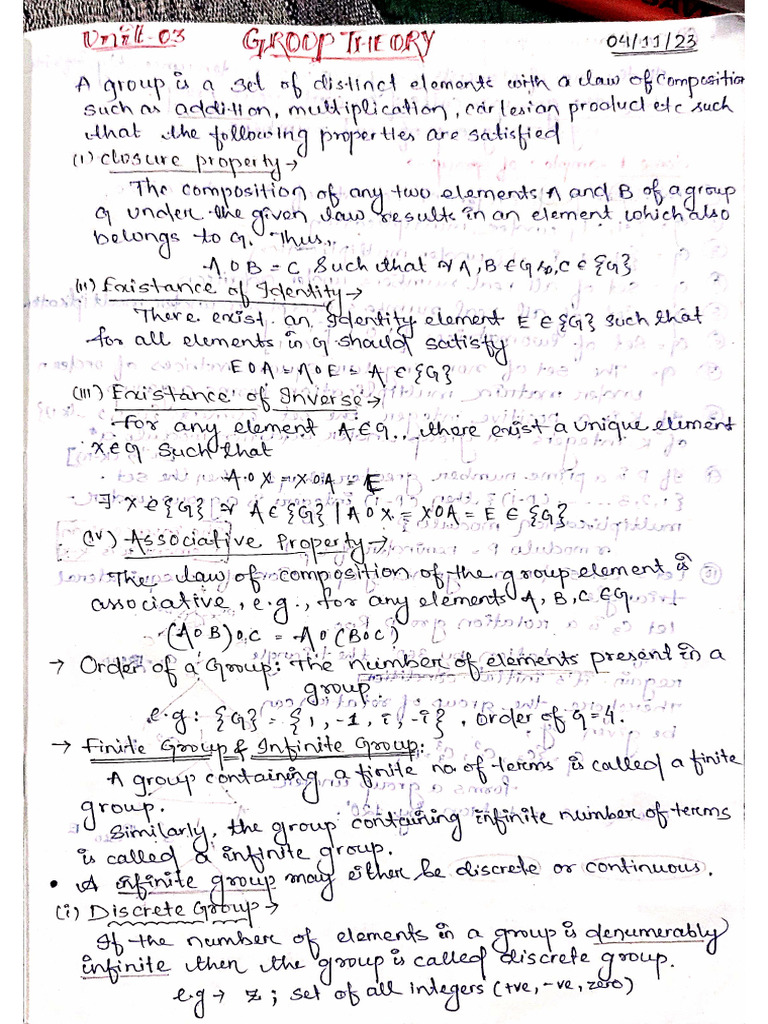 Unit-03 GROUP THEORY 04/11/23
A group is a set of distinct elements with a law of composition
such as addition, multiplication, cartesian product etc such
that the following properties are satisfied
(i) closure property→
The composition of any two elements A and B of a group
G under the given law results in an element which also
belongs to G. Thus,
A o B = C, such that ∀ A, B ∈ G, C ∈ {G}
(ii) Existance of Identity→
There exist an Identity element E ∈ {G} such that
for all elements in G should satisfy
E o A = A o E = A ∈ {G}
(iii) Existance of Inverse→
For any element A ∈ G, there exist a unique element
X ∈ G such that
A o X = X o A = E
∃ X ∈ {G} ∀ A ∈ {G} | A o X = X o A = E ∈ {G}
(iv) Associative Property→
The law of composition of the group element is
associative, e.g., for any elements A, B, C ∈ G
(A o B) o C = A o (B o C)
→ Order of a Group: The number of elements present in a
group.
e.g: {G} = {1, -1, i, -i}, order of G = 4.
→ Finite Group & Infinite Group:
A group containing a finite no. of terms is called a finite
group.
Similarly, the group containing infinite number of terms
is called a infinite group.
• A infinite group may either be discrete or continuous.
(i) Discrete Group→
If the number of elements in a group is denumerably
infinite then the group is called discrete group.
e.g → Z; set of all integers (+ve, -ve, zero)